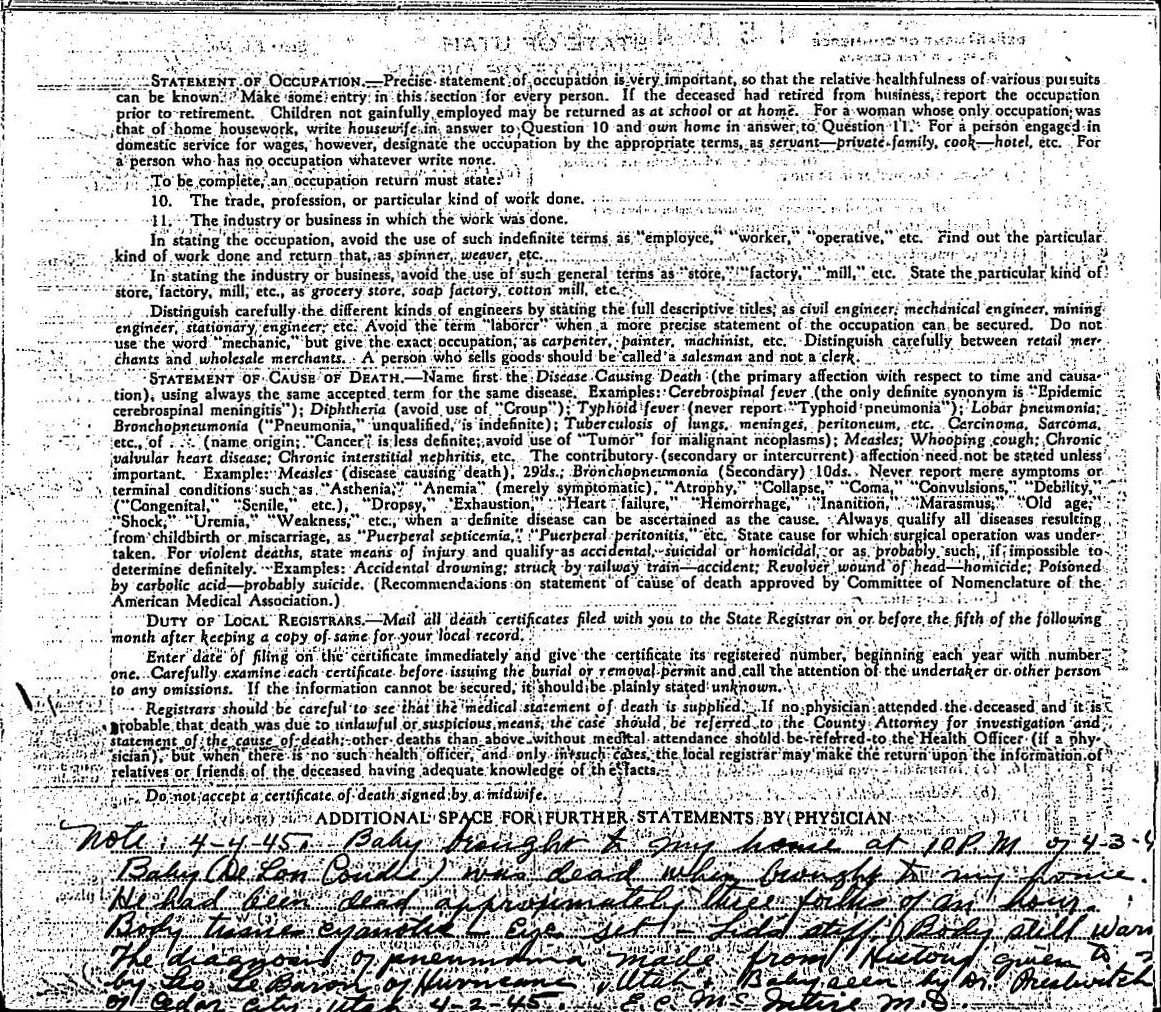 STATEMENT OF OCCUPATION.—Precise statement of occupation is very important, so that the relative healthfulness of various pursuits
can be known. Make some entry in this section for every person. If the deceased had retired from business, report the occupation
prior to retirement. Children not gainfully employed may be returned as at school or at home. For a woman whose only occupation was
that of home housework, write housewife in answer to Question 10 and own home in answer to Question 11. For a person engaged in
domestic service for wages, however, designate the occupation by the appropriate terms, as servant—private family, cook—hotel, etc. For
a person who has no occupation whatever write none.
To be complete, an occupation return must state:
10. The trade, profession, or particular kind of work done.
11. The industry or business in which the work was done.
In stating the occupation, avoid the use of such indefinite terms as "employee," "worker," "operative," etc. Find out the particular
kind of work done and return that, as spinner, weaver, etc.
In stating the industry or business, avoid the use of such general terms as "store," "factory," "mill," etc. State the particular kind of
store, factory, mill, etc., as grocery store, soap factory, cotton mill, etc.
Distinguish carefully the different kinds of engineers by stating the full descriptive titles, as civil engineer, mechanical engineer, mining
engineer, stationary engineer, etc. Avoid the term "laborer" when a more precise statement of the occupation can be secured. Do not
use the word "mechanic," but give the exact occupation, as carpenter, painter, machinist, etc. Distinguish carefully between retail mer-
chants and wholesale merchants. A person who sells goods should be called a salesman and not a clerk.
STATEMENT OF CAUSE OF DEATH.—Name first the Disease Causing Death (the primary affection with respect to time and causa-
tion), using always the same accepted term for the same disease. Examples: Cerebrospinal fever (the only definite synonym is "Epidemic
cerebrospinal meningitis"); Diphtheria (avoid use of "Croup"); Typhoid fever (never report "Typhoid pneumonia"); Lobar pneumonia;
Bronchopneumonia ("Pneumonia," unqualified, is indefinite); Tuberculosis of lungs, meninges, peritoneum, etc. Carcinoma, Sarcoma,
etc., of . . . (name origin; "Cancer" is less definite; avoid use of "Tumor" for malignant neoplasms); Measles; Whooping cough; Chronic
valvular heart disease; Chronic interstitial nephritis, etc. The contributory (secondary or intercurrent) affection need not be stated unless
important. Example: Measles (disease causing death), 29ds.; Bronchopneumonia (Secondary) 10ds. Never report mere symptoms or
terminal conditions such as "Asthenia," "Anemia" (merely symptomatic), "Atrophy," "Collapse," "Coma," "Convulsions," "Debility,"
("Congenital," "Senile," etc.), "Dropsy," "Exhaustion," "Heart failure," "Hemorrhage," "Inanition," "Marasmus," "Old age,"
"Shock," "Uremia," "Weakness," etc., when a definite disease can be ascertained as the cause. Always qualify all diseases resulting
from childbirth or miscarriage, as "Puerperal septicemia," "Puerperal peritonitis," etc. State cause for which surgical operation was under-
taken. For violent deaths, state means of injury and qualify as accidental, suicidal or homicidal, or as probably such, if impossible to
determine definitely. Examples: Accidental drowning; struck by railway train—accident; Revolver wound of head—homicide; Poisoned
by carbolic acid—probably suicide. (Recommendations on statement of cause of death approved by Committee of Nomenclature of the
American Medical Association.)
DUTY OF LOCAL REGISTRARS.—Mail all death certificates filed with you to the State Registrar on or before the fifth of the following
month after keeping a copy of same for your local record.
Enter date of filing on the certificate immediately and give the certificate its registered number, beginning each year with number
one. Carefully examine each certificate before issuing the burial or removal permit and call the attention of the undertaker or other person
to any omissions. If the information cannot be secured, it should be plainly stated unknown.
Registrars should be careful to see that the medical statement of death is supplied. If no physician attended the deceased and it is
probable that death was due to unlawful or suspicious means, the case should be referred to the County Attorney for investigation and
statement of the cause of death; other deaths than above without medical attendance should be referred to the Health Officer (if a phy-
sician), but when there is no such health officer, and only in such cases, the local registrar may make the return upon the information of
relatives or friends of the deceased having adequate knowledge of the facts.
Do not accept a certificate of death signed by a midwife.
ADDITIONAL SPACE FOR FURTHER STATEMENTS BY PHYSICIAN
Note: 4-4-45. Baby brought to my home at 10 P.M of 4-3-4
Baby (De Lon Coudle) was dead when brought to my home.
He had been dead approximately three forths of an hour.
Body tissues cyanotic - Eyes set - Lids stiff. Body still warm
The diagnosis of pneumonia made from History given to
by Geo. LeBaron of Hurricane, Utah & Baby seen by Dr. Prestwitch
of Cedar City, Utah 4-2-45. E.C. McIntire M.D.